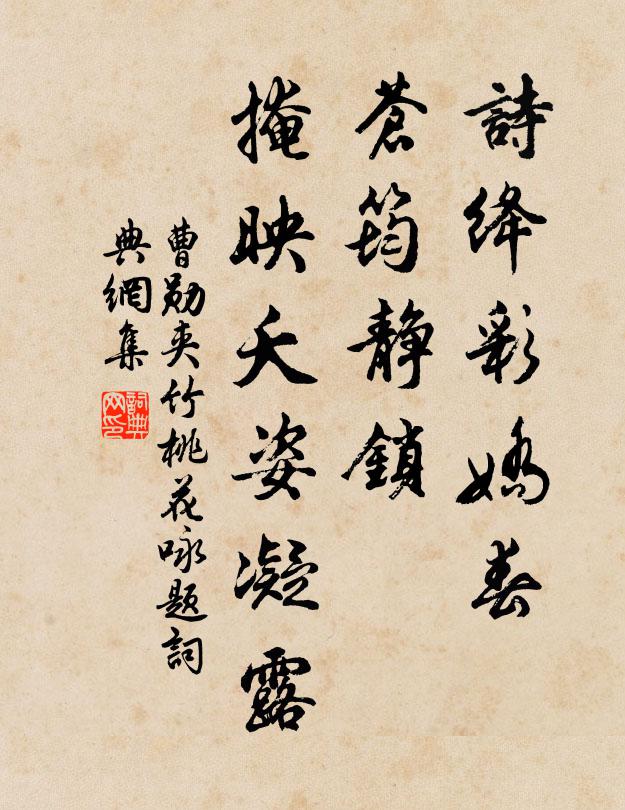 詩绛彩嬌春
蒼筠静鎖
掩映夭姿凝露
曹勋夾竹桃花咏题詞
典網集
詞典网印